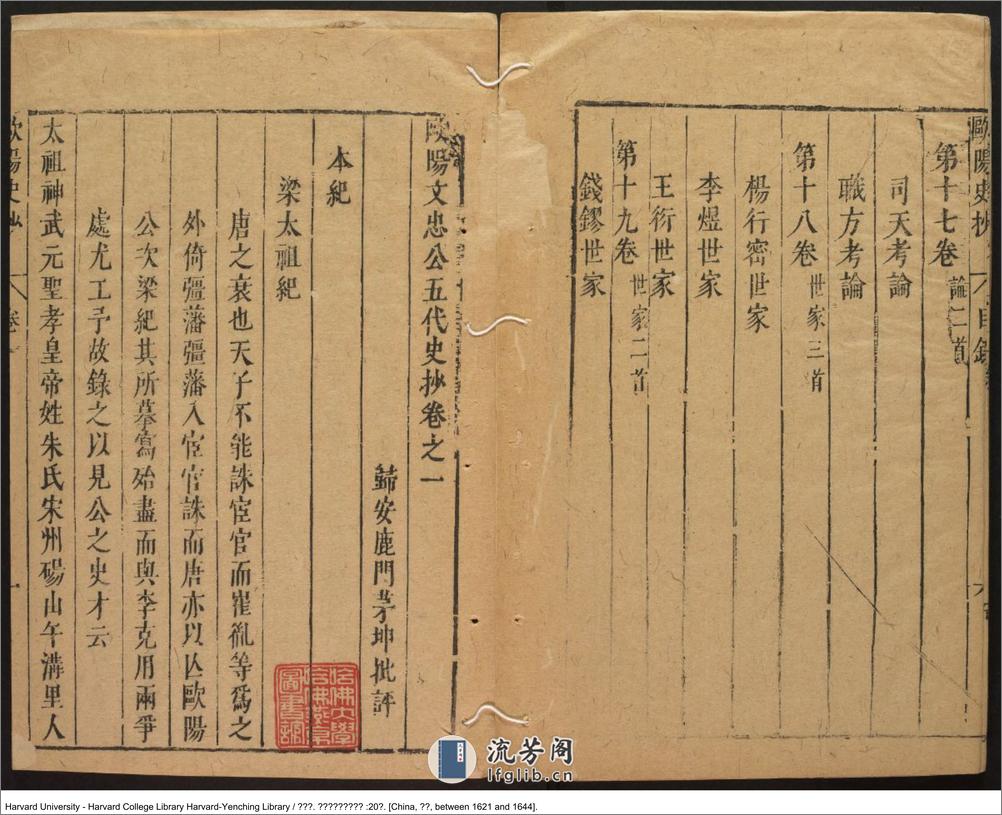 第十七卷 論二首
司天考論
職方考論
第十八卷 世家三首
楊行密世家
李煜世家
王衍世家
第十九卷 世家二首
錢鏐世家
歐陽文忠公五代史抄卷之一
歸安鹿門茅坤批評
本紀
梁太祖紀
唐之衰也天子不能誅宦官而崔胤等爲之
外倚彊藩彊藩入宦官誅而唐亦以亾歐陽
公次梁紀其所摹寫殆盡而與李克用兩爭
處尤工予故錄之以見公之史才云
太祖神武元聖孝皇帝姓朱氏宋州碭山午溝里人
哈佛大學
哈佛燕京
圖書館
流芳阁
lfglib.cn
Harvard University - Harvard College Library Harvard-Yenching Library / ???. ????????? :20?. [China, ??, between 1621 and 1644].